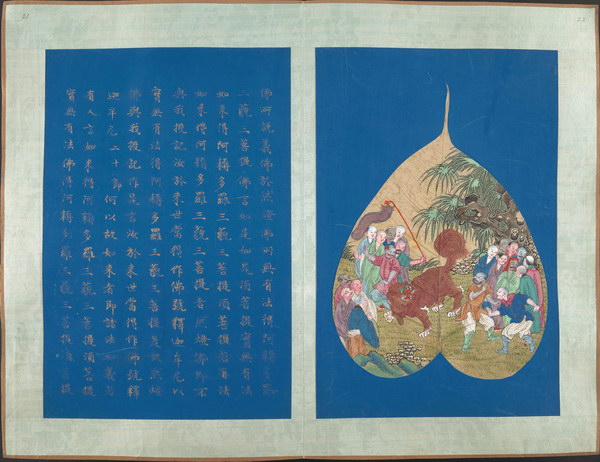 21
22
佛所說義佛於然燈佛所無有法得阿耨多羅
三藐三菩提佛言如是如是須菩提實無有法
如來得阿耨多羅三藐三菩提須菩提若有法
如來得阿耨多羅三藐三菩提者然燈佛即不
與我授記汝於來世當得作佛號釋迦牟尼以
實無有法得阿耨多羅三藐三菩提是故然燈
佛與我授記作是言汝於來世當得作佛號釋
迦牟尼二十節何以故如來者即諸法如義若
有人言如來得阿耨多羅三藐三菩提須菩提
實無有法佛得阿耨多羅三藐三菩提須菩提